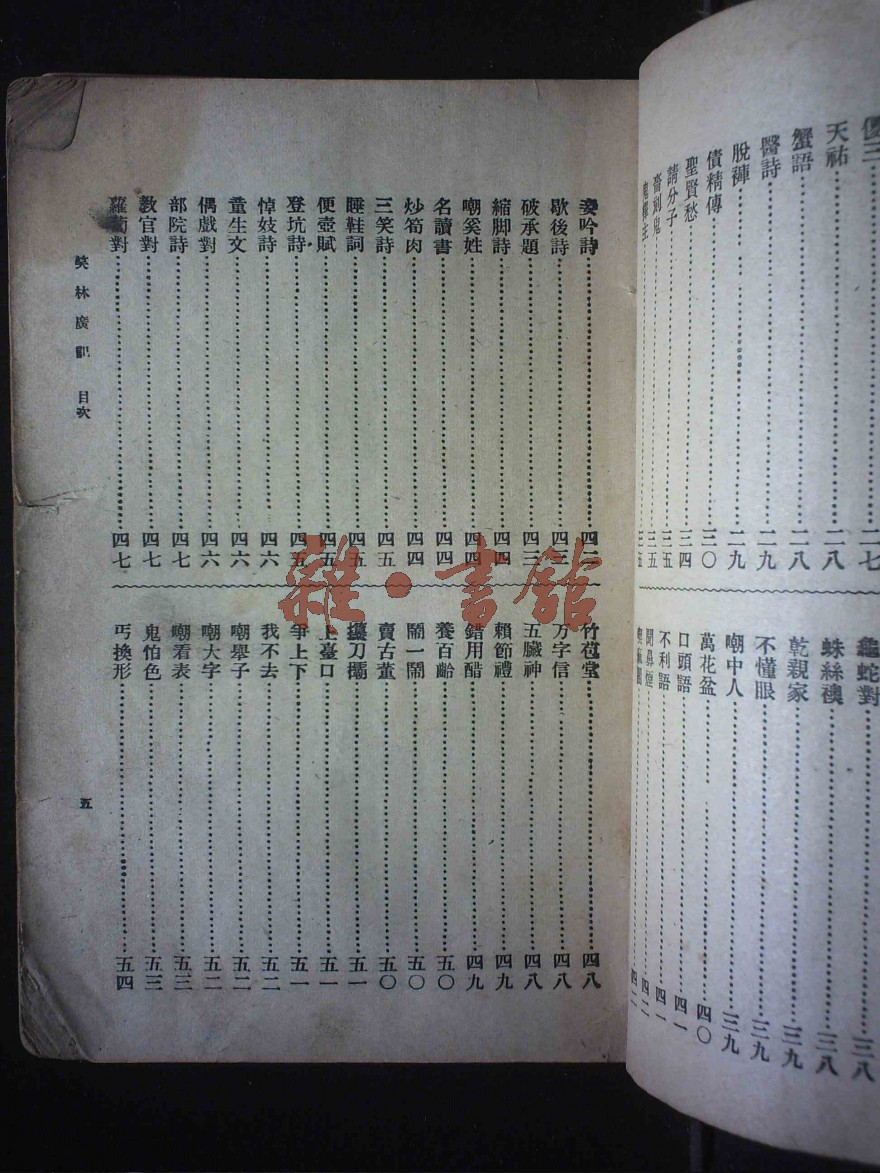 天祐……二八
蟹語……二八
醫詩……二九
脫褲……二九
債精傳……三〇
聖賢愁……三四
請分子……三五
龜蛇對……三八
蛛絲襖……三八
乾親家……三九
不懂眼……三九
嘲中人……三九
萬花盆……四〇
口頭語……四一
不利語……四一
聞鼻煙……四二
妾吟詩……四三
歇後詩……四三
破承題……四三
縮脚詩……四四
嘲奚姓……四四
名讀書……四四
炒筍肉……四四
三笑詩……四五
睡鞋詞……四五
便壺賦……四五
登坑詩……四五
悼妓詩……四六
童生文……四六
偶戲對……四六
部院詩……四七
教官對……四七
蘿蔔對……四七
竹苞堂……四八
万字信……四八
五臟神……四八
賴節禮……四九
錯用醋……四九
養百齡……五〇
鬧一鬧……五〇
賣古董……五〇
攮刀攮……五一
上臺口……五一
爭上下……五一
我不去……五二
嘲舉子……五二
嘲大字……五二
嘲看表……五三
鬼怕色……五三
丐換形……五四
笑林廣記 目次
五
雜·書館